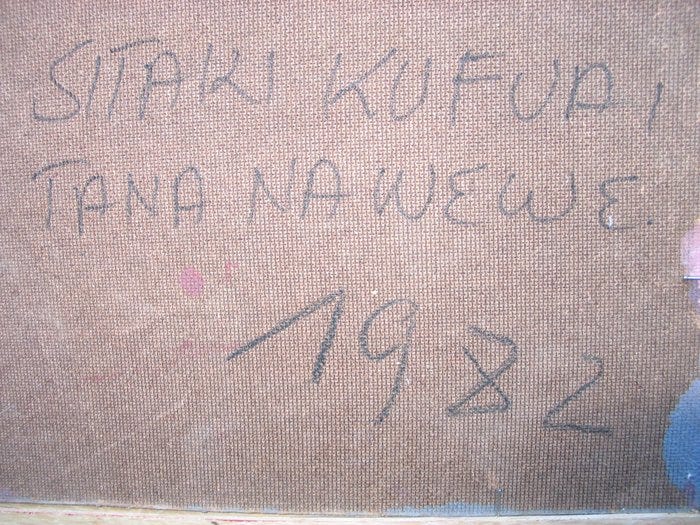 SITAKI KUFUAI
TANA NA WEWE.
1982